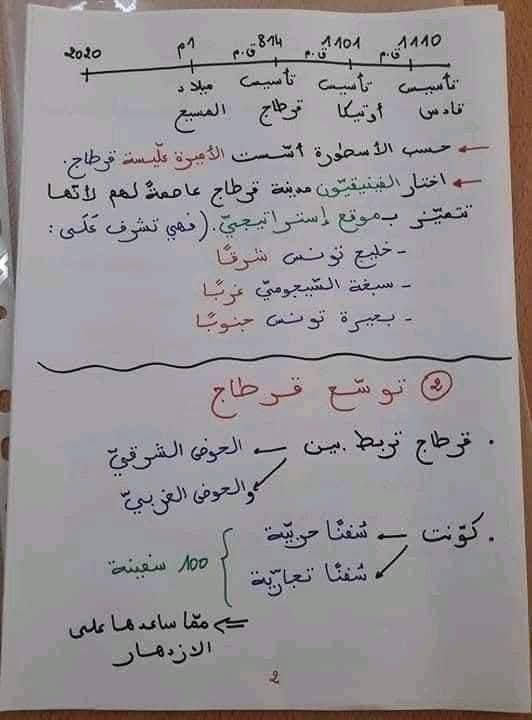 1110 ق.م 1101 ق.م 814 ق.م 1م 2020
تأسيس تأسيس تأسيس ميلاد
قادس أوتيكا قرطاج المسيح
← حسب الأسطورة أسّست الأميرة علّيسة قرطاج.
← اختار الفينيقيّون مدينة قرطاج عاصمةً لهم لأنّها
تتميّز بـموقع إستراتيجيّ. (فهي تشرف عَلَى:
- خليج تونس شرقًا
- سبخة السّيجوميّ غربًا
- بحيرة تونس جنوبًا
② توسّع قرطاج
. قرطاج تربط بين ← الحوض الشرقيّ
والحوض الغربيّ
. كوّنت ← سُفنًا حربيّة
سُفنًا تجاريّة } 100 سفينة
⇐ ممّا ساعدها على
الازدهار
2